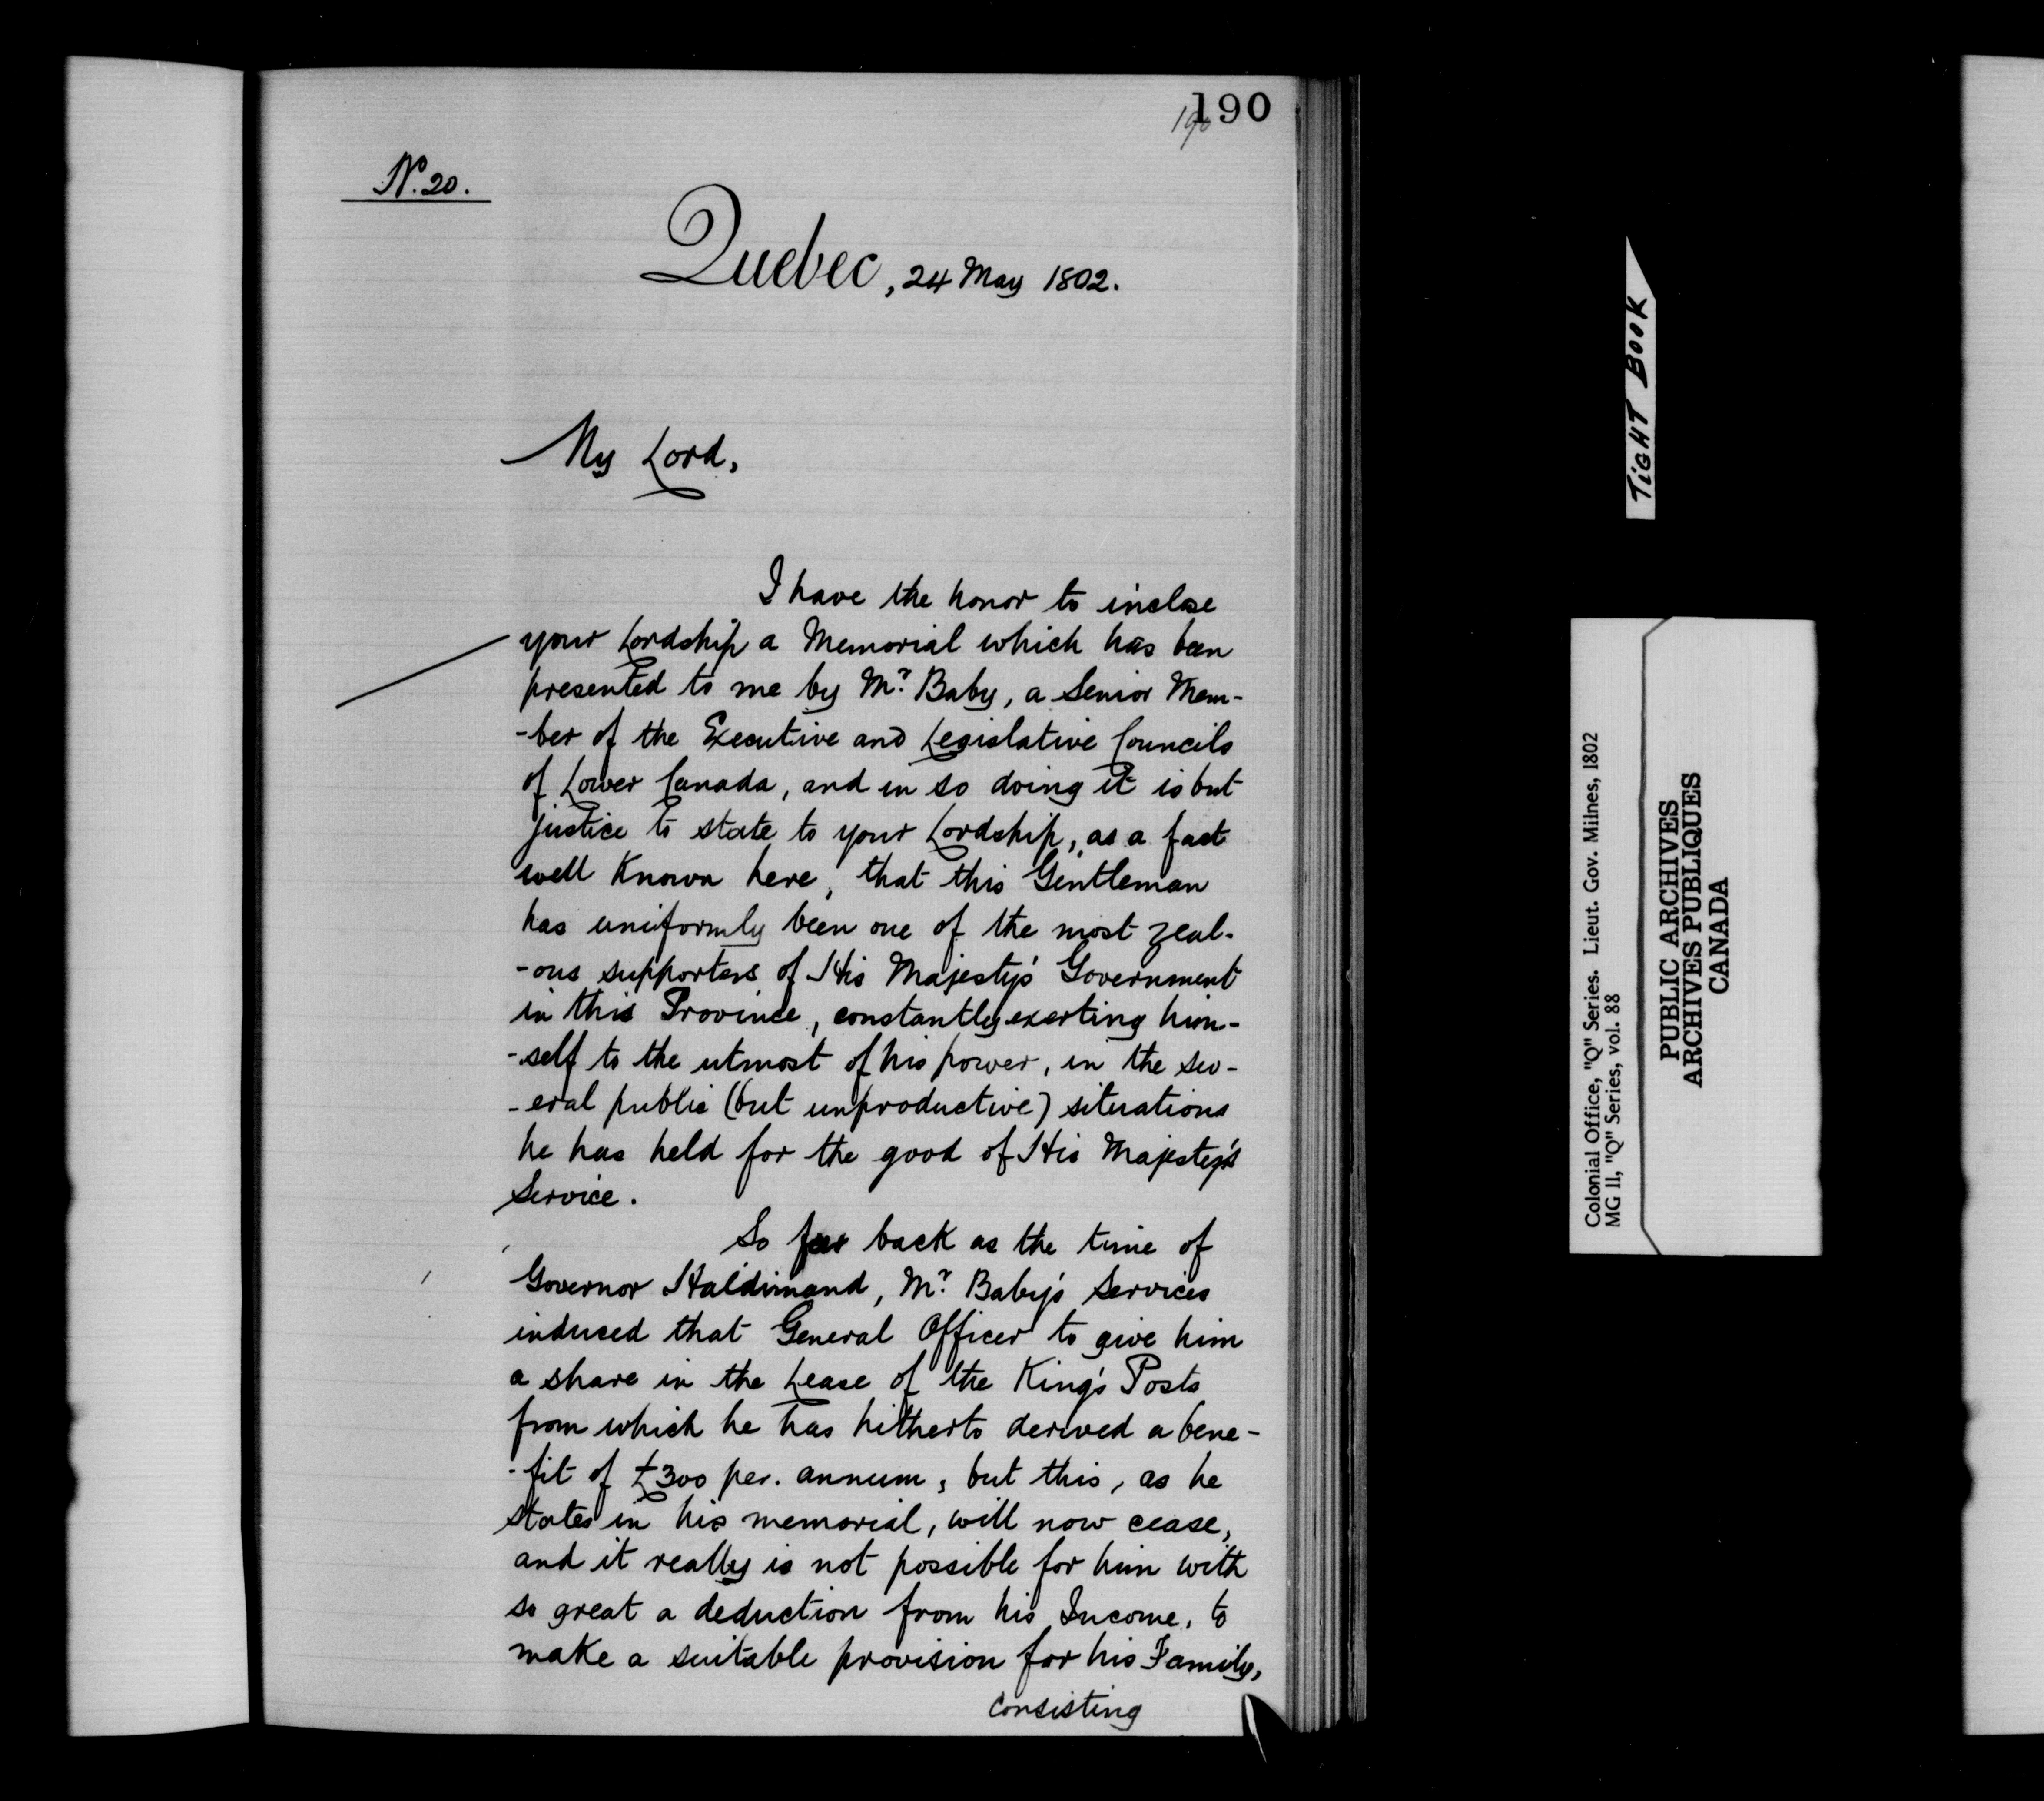 190
190
No. 20.
Quebec, 24 May 1802.
My Lord,
I have the honor to inclose
your Lordship a Memorial which has been
presented to me by Mr. Baby, a Senior Mem-
-ber of the Executive and Legislative Councils
of Lower Canada, and in so doing it is but
justice to state to your Lordship, as a fact
well Known here, that this Gentleman
has uniformly been one of the most zeal-
-ous supporters of His Majesty's Government
in this Province, constantly exerting him-
-self to the utmost of his power, in the sev-
-eral public (but unproductive) situations
he has held for the good of His Majesty's
Service.
So far back as the time of
Governor Haldimand, Mr. Baby's Services
induced that General Officer to give him
a share in the Lease of the King's Posts
from which he has hitherto derived a bene-
-fit of £300 per. annum, but this, as he
states in his memorial, will now cease,
and it really is not possible for him with
so great a deduction from his Income, to
make a suitable provision for his Family,
consisting
TIGHT BOOK
Colonial Office, "Q" Series. Lieut. Gov. Milnes, 1802
MG 11, "Q" Series, vol. 88
PUBLIC ARCHIVES
ARCHIVES PUBLIQUES
CANADA